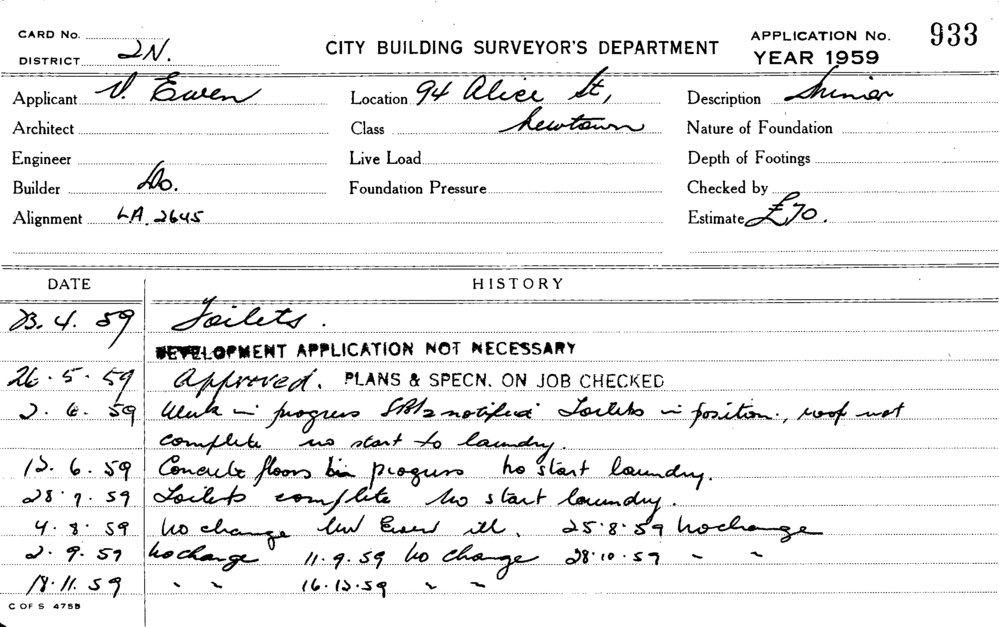 CARD No.
DISTRICT 2N.
CITY BUILDING SURVEYOR'S DEPARTMENT
APPLICATION No. 933
YEAR 1959
Applicant V. Ewen
Location 94 Alice St,
Description
Architect
Class Newtown
Nature of Foundation
Engineer
Live Load
Depth of Footings
Builder Do.
Foundation Pressure
Checked by
Alignment LA 2645
Estimate £70.
DATE HISTORY
23. 4. 59 Toilets.
DEVELOPMENT APPLICATION NOT NECESSARY
26. 5. 59 Approved. PLANS & SPECN. ON JOB CHECKED
2. 6. 59 Work in progress notified Toilets in position, roof not
complete no start to laundry.
12. 6. 59 Concrete floors in progress no start laundry.
28. 7. 59 Toilets complete No start laundry.
4. 8. 59 No change Ewen ill. 25.8.59 No change
2. 9. 59 No change 11.9.59 No change 28.10.59 " "
18. 11. 59 " " 16.12.59 " "
C OF S 475B